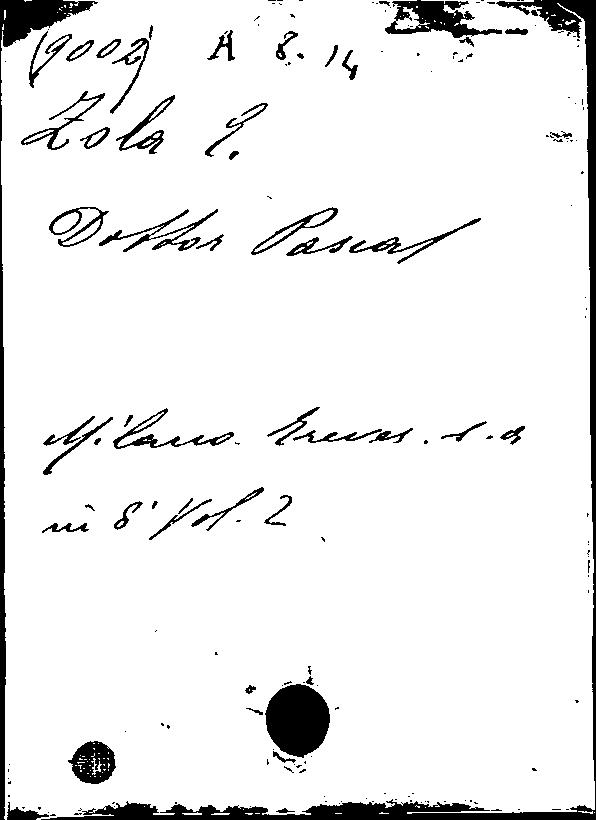 (9002) A 8.14
Zola E.
Dottor Pascal
Milano. Treves. s.a
in 8° Vol. 2